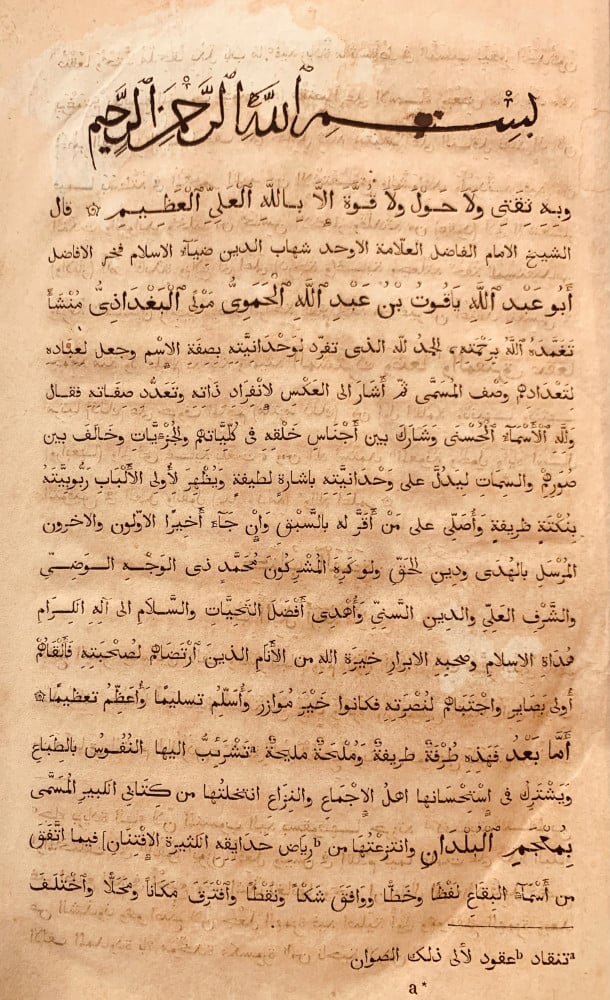 بِسْمِ ٱللَّهِ ٱلرَّحْمٰنِ ٱلرَّحِيمِ
وبِهِ ثِقَتِى ولَا حَوْلَ ولَا قُوَّةَ إِلَّا بِٱللَّهِ ٱلْعَلِىِّ ٱلْعَظِيمِ ۞ قال
الشيخ الامام الفاضل العلّامة الاوحد شهاب الدين ضِيَآءُ الاسلام فخر الافاضل
أَبُو عَبْدِ ٱللَّهِ يَاقُوتُ بْنُ عَبْدِ ٱللَّهِ ٱلْحَمَوِىُّ مَوْلَى ٱلْبَغْدَادِىُّ مُنْشَأً
تَغَمَّدَهُ ٱللَّهُ بِرَحْمَتِهِ، الحمدُ لله الذى تفرّد لِوَحْدَانيَّتِهِ بصِفَةِ الإِسْمِ وجعل لِعِبَادِهِ
لتَعْدَادِهِمْ وَصْفَ المُسَمَّى ثمّ أَشَارَ الى العَكْسِ لِانْفِرَادِ ذَاتِهِ وتَعَدُّدِ صِفَاتِهِ فقال
وَلِلَّهِ ٱلْأَسْمَآءُ ٱلْحُسْنَى وشَارَكَ بين أَجْنَاسِ خَلْقِهِ فى كُلِّيَاتِهِمْ والجُزْئِيَّاتِ وخَالَفَ بين
صُوَرِهِمْ والسِّمَاتِ لِيَدُلَّ على وَحْدَانيَّتِهِ بإشارةٍ لطيفةٍ ويُظْهِرَ لأُولِى الأَلْبَابِ رَبُوبِيَّتَهُ
بنُكْتَةٍ ظريفةٍ وأُصَلِّى على مَنْ أَقَرَّ له بالسَّبْقِ وَإِنْ جَآءَ أَخِيرًا الاوّلون والاخرون
المُرْسَلِ بالهُدَى ودِينِ الحَقِّ ولو كَرِهَ المُشْرِكُونَ مُحَمَّدٍ ذى الوَجْهِ الوَضِىِّ
والشَّرَفِ العَلِىِّ والدين السَّنِىِّ وأُهْدِى أَفْضَلَ التَّحِيَّاتِ والسَّلَامِ الى آلِهِ الكِرَامِ
هُدَاةِ الاسلام وصَحْبِهِ الابرارِ خِيَرَةِ اللهِ من الأَنَامِ الذين ٱرْتَضَاهُمْ لصُحْبَتِهِ فَأَلْقَاهُمْ
أُولِى بَصَايِرَ وٱجْتَبَاهُمْ لِنُصْرَتِهِ فكانوا خَيْرَ مُوَازِرٍ وأُسَلِّمُ تسليمًا وأُعَظِّمُ تعظيمًا ۞
أَمَّا بَعْدُ فَهَذِهِ طُرْفَةٌ طريفةٌ ومُلْحَةٌ مليحةٌ a تَشْرَئِبُّ اليها النُّفُوسُ بالطِّبَاعِ
وَيَشْتَرِكُ فى ٱسْتِحْسَانِها اهلُ الإِجْمَاعِ والنِّزَاعِ انتخلتُها من كِتَابِى الكبيرِ المُسَمَّى
بِمُعْجَمِ ٱلْبُلْدَانِ وانتزعْتُها من b رِيَاضِ حدايقِه الكثيرة الاِفْتِنَانِ] فيما ٱتَّفَقَ
من أَسْمَآءِ البِقَاعِ لَفْظًا وخَطًّا ووَافَقَ شَكْلًا ونَقْطًا وٱفْتَرَقَ مَكَانًا ومَحَلًّا وٱخْتَلَفَ
a تنقاد b عقود لآلى ذلك الصوان
a*